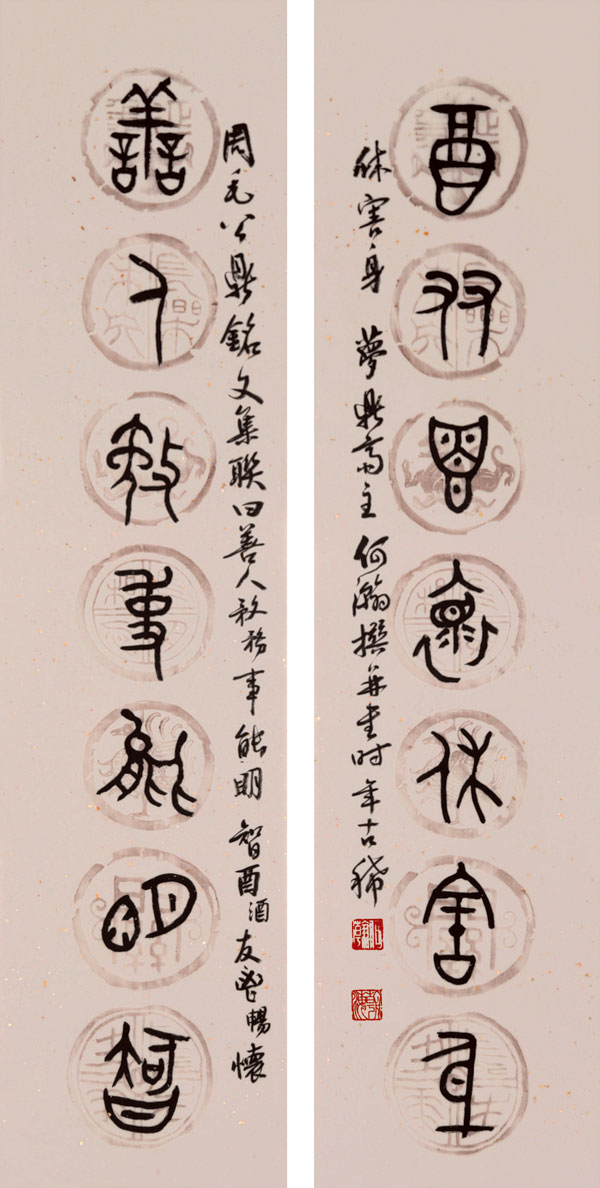 善人敄事能明智
周毛公鼎銘文集聯曰善人敄務事能明 智酉酒友鬯暢懷
休害身 夢鼎齋主何瀚撰并書时年古稀
酉友鬯褱休害身